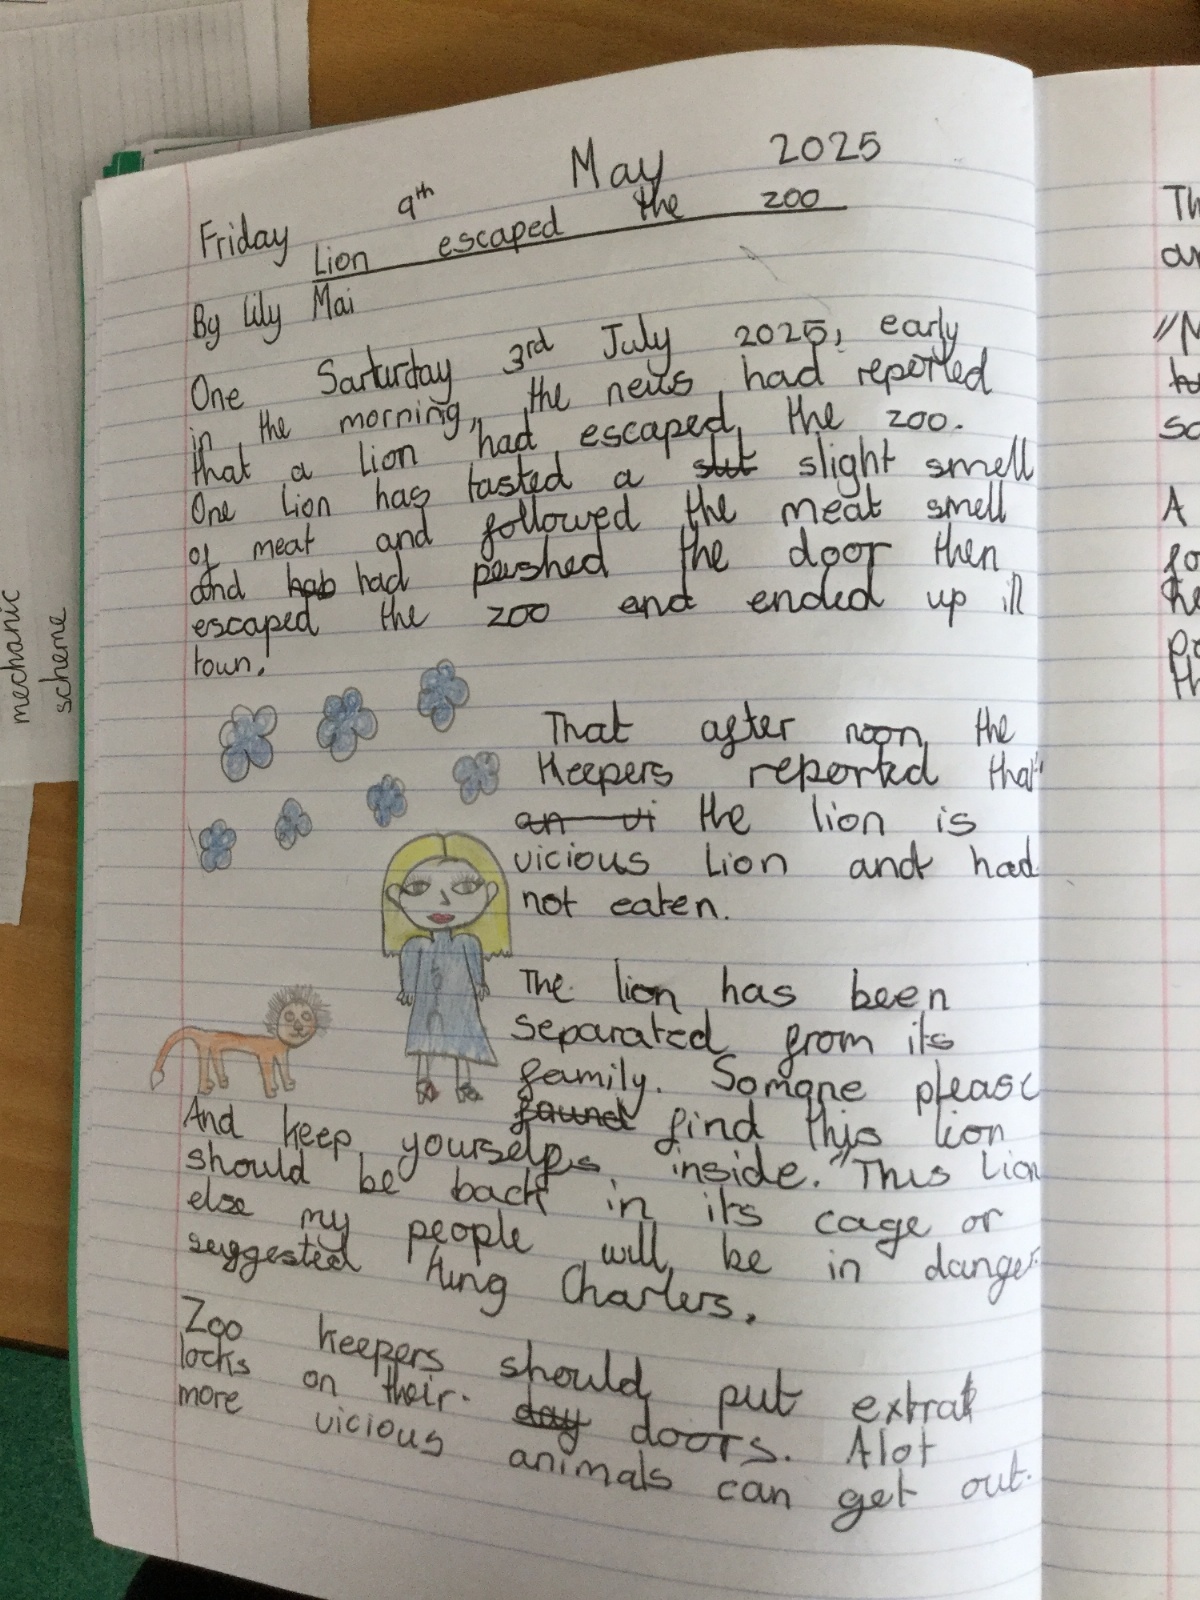 mechanic
scheme
Friday 9th May 2025
Lion escaped the zoo
By Lily Mai
One Sarturday 3rd July 2025, early
in the morning, the news had reported
that a lion had escaped the zoo.
One lion has tasted a slit slight smell
of meat and followed the meat smell
and hab had pushed the door then
escaped the zoo and ended up in
town.
That after noon the
Keepers reported that
an vi the lion is
vicious lion and had
not eaten.
The lion has been
separated from its
family. Somone please
found find this lion
And keep yourselfs inside. "This Lion
should be back in its cage or
else my people will be in danger
suggested King Charlers.
Zoo keepers should put extra
locks on their day doors. Alot
more vicious animals can get out.
Th
an
"M
so
A
fo
he
pr
th